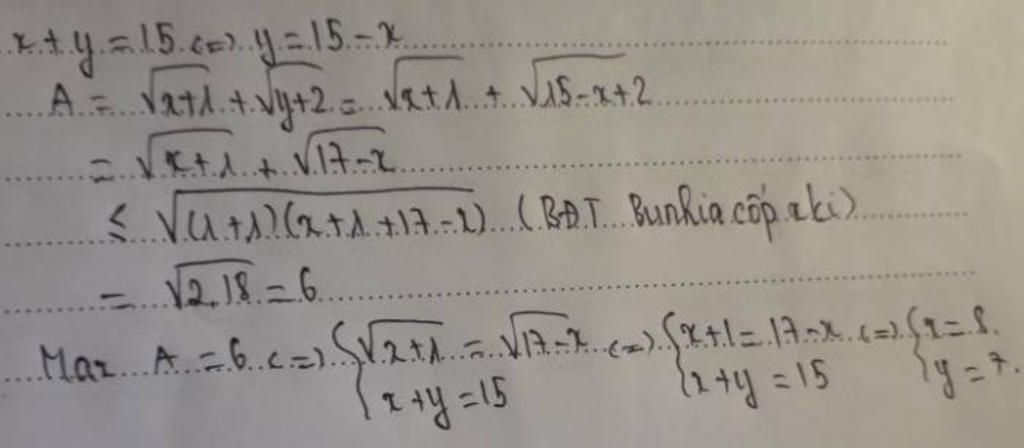 x + y = 15 <=> y = 15 - x
A = √(x+1) + √(y+2) = √(x+1) + √(15-x+2)
= √(x+1) + √(17-x)
≤ √((1+1)(x+1+17-x)) (BĐT Bunhia cốp xki)
= √(2.18) = 6
Max A = 6 <=> { √(x+1) = √(17-x) <=> { x+1 = 17-x <=> { x = 8.
x+y = 15 x+y = 15 y = 7.